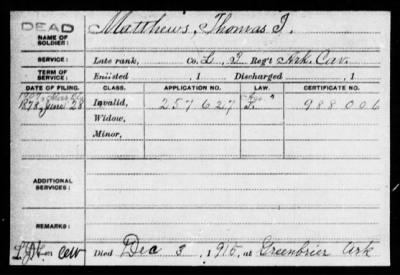 DEAD
NAME OF SOLDIER: Matthews, Thomas J.
SERVICE: Late rank, Co. L, 2 Reg't Ark. Cav.
TERM OF SERVICE: Enlisted , 1 Discharged , 1
DATE OF FILING. CLASS. APPLICATION NO. LAW. CERTIFICATE NO.
1878, June 28 Invalid, 257627 988006
Widow,
Minor,
ADDITIONAL SERVICES:
REMARKS:
Died Dec 3, 1915, at Greenbrier Ark